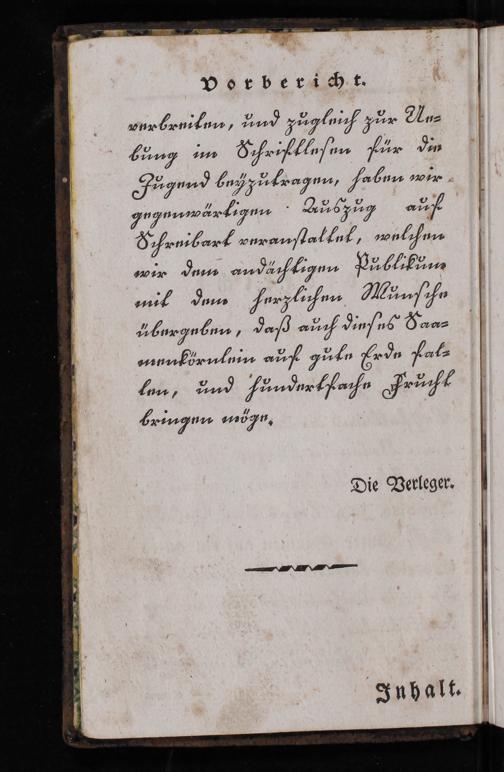 Vorbericht.
verbreiten, und zugleich zur Ue=
bung im Schriftlesen für die
Jugend beyzutragen, haben wir
gegenwärtigen Auszug auf
Schreibart veranstaltet, welchen
wir dem andächtigen Publikum
mit dem herzlichen Wunsche
übergeben, daß auch dieses Saa=
menkörnlein auf gute Erde fal=
len, und hundertfache Frucht
bringen möge.
Die Verleger.
Inhalt.